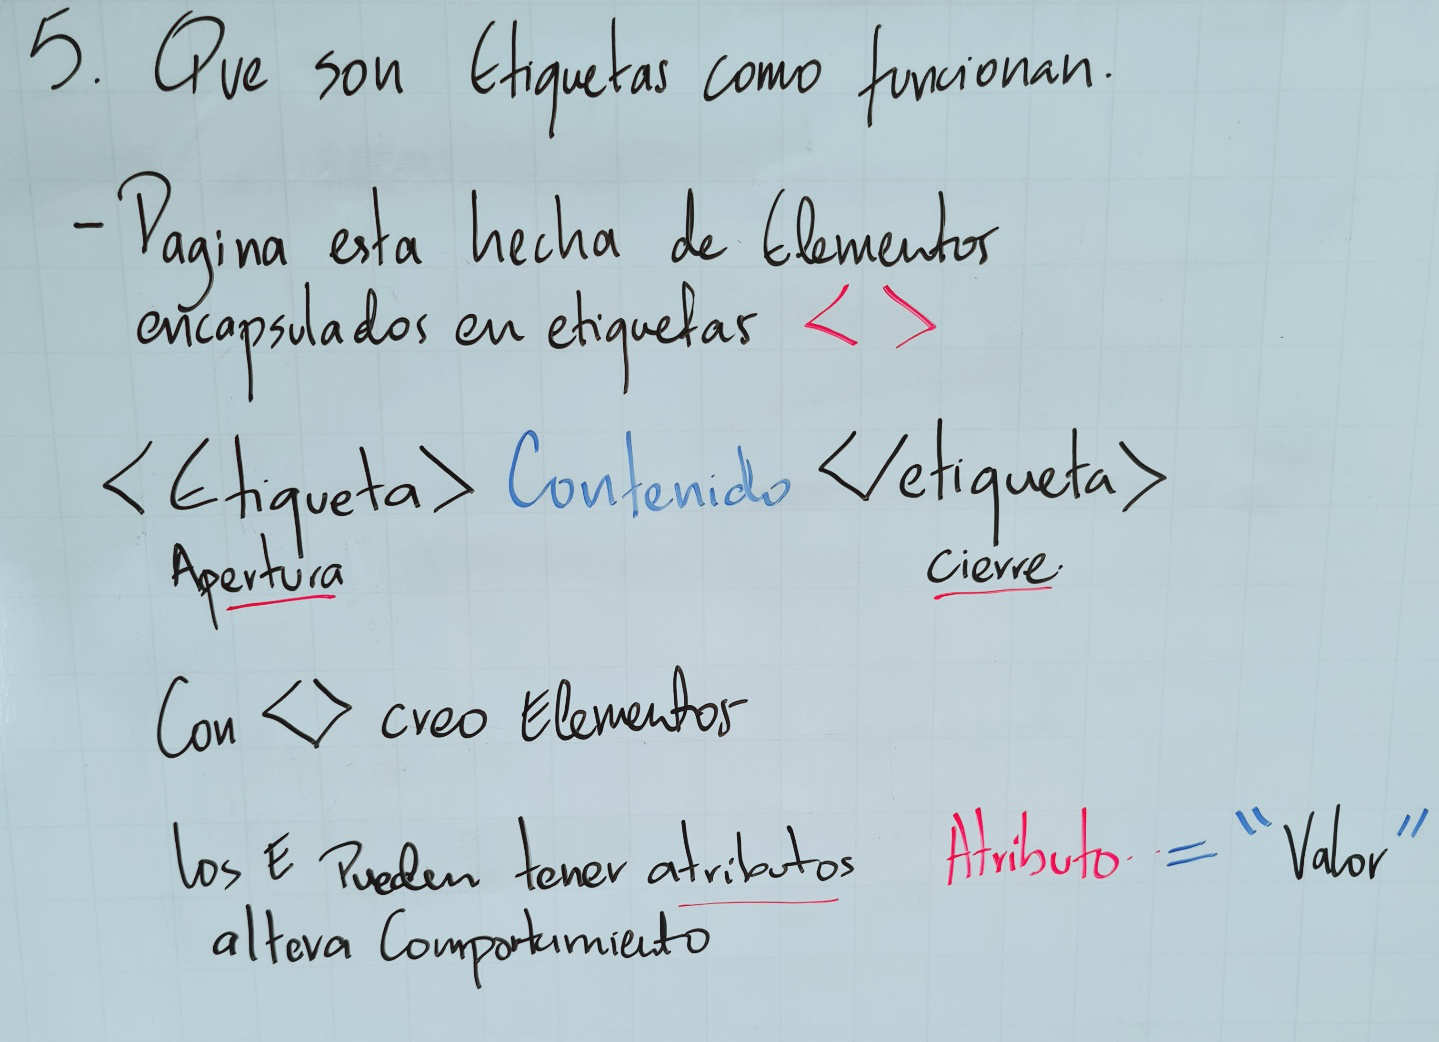 5. Que son Etiquetas como funcionan.
- Pagina esta hecha de Elementos
encapsulados en etiquetas < >
<Etiqueta> Contenido </etiqueta>
Apertura cierre.
Con <> creo Elementos
los E Pueden tener atributos Atributo = "Valor"
altera Comportamiento